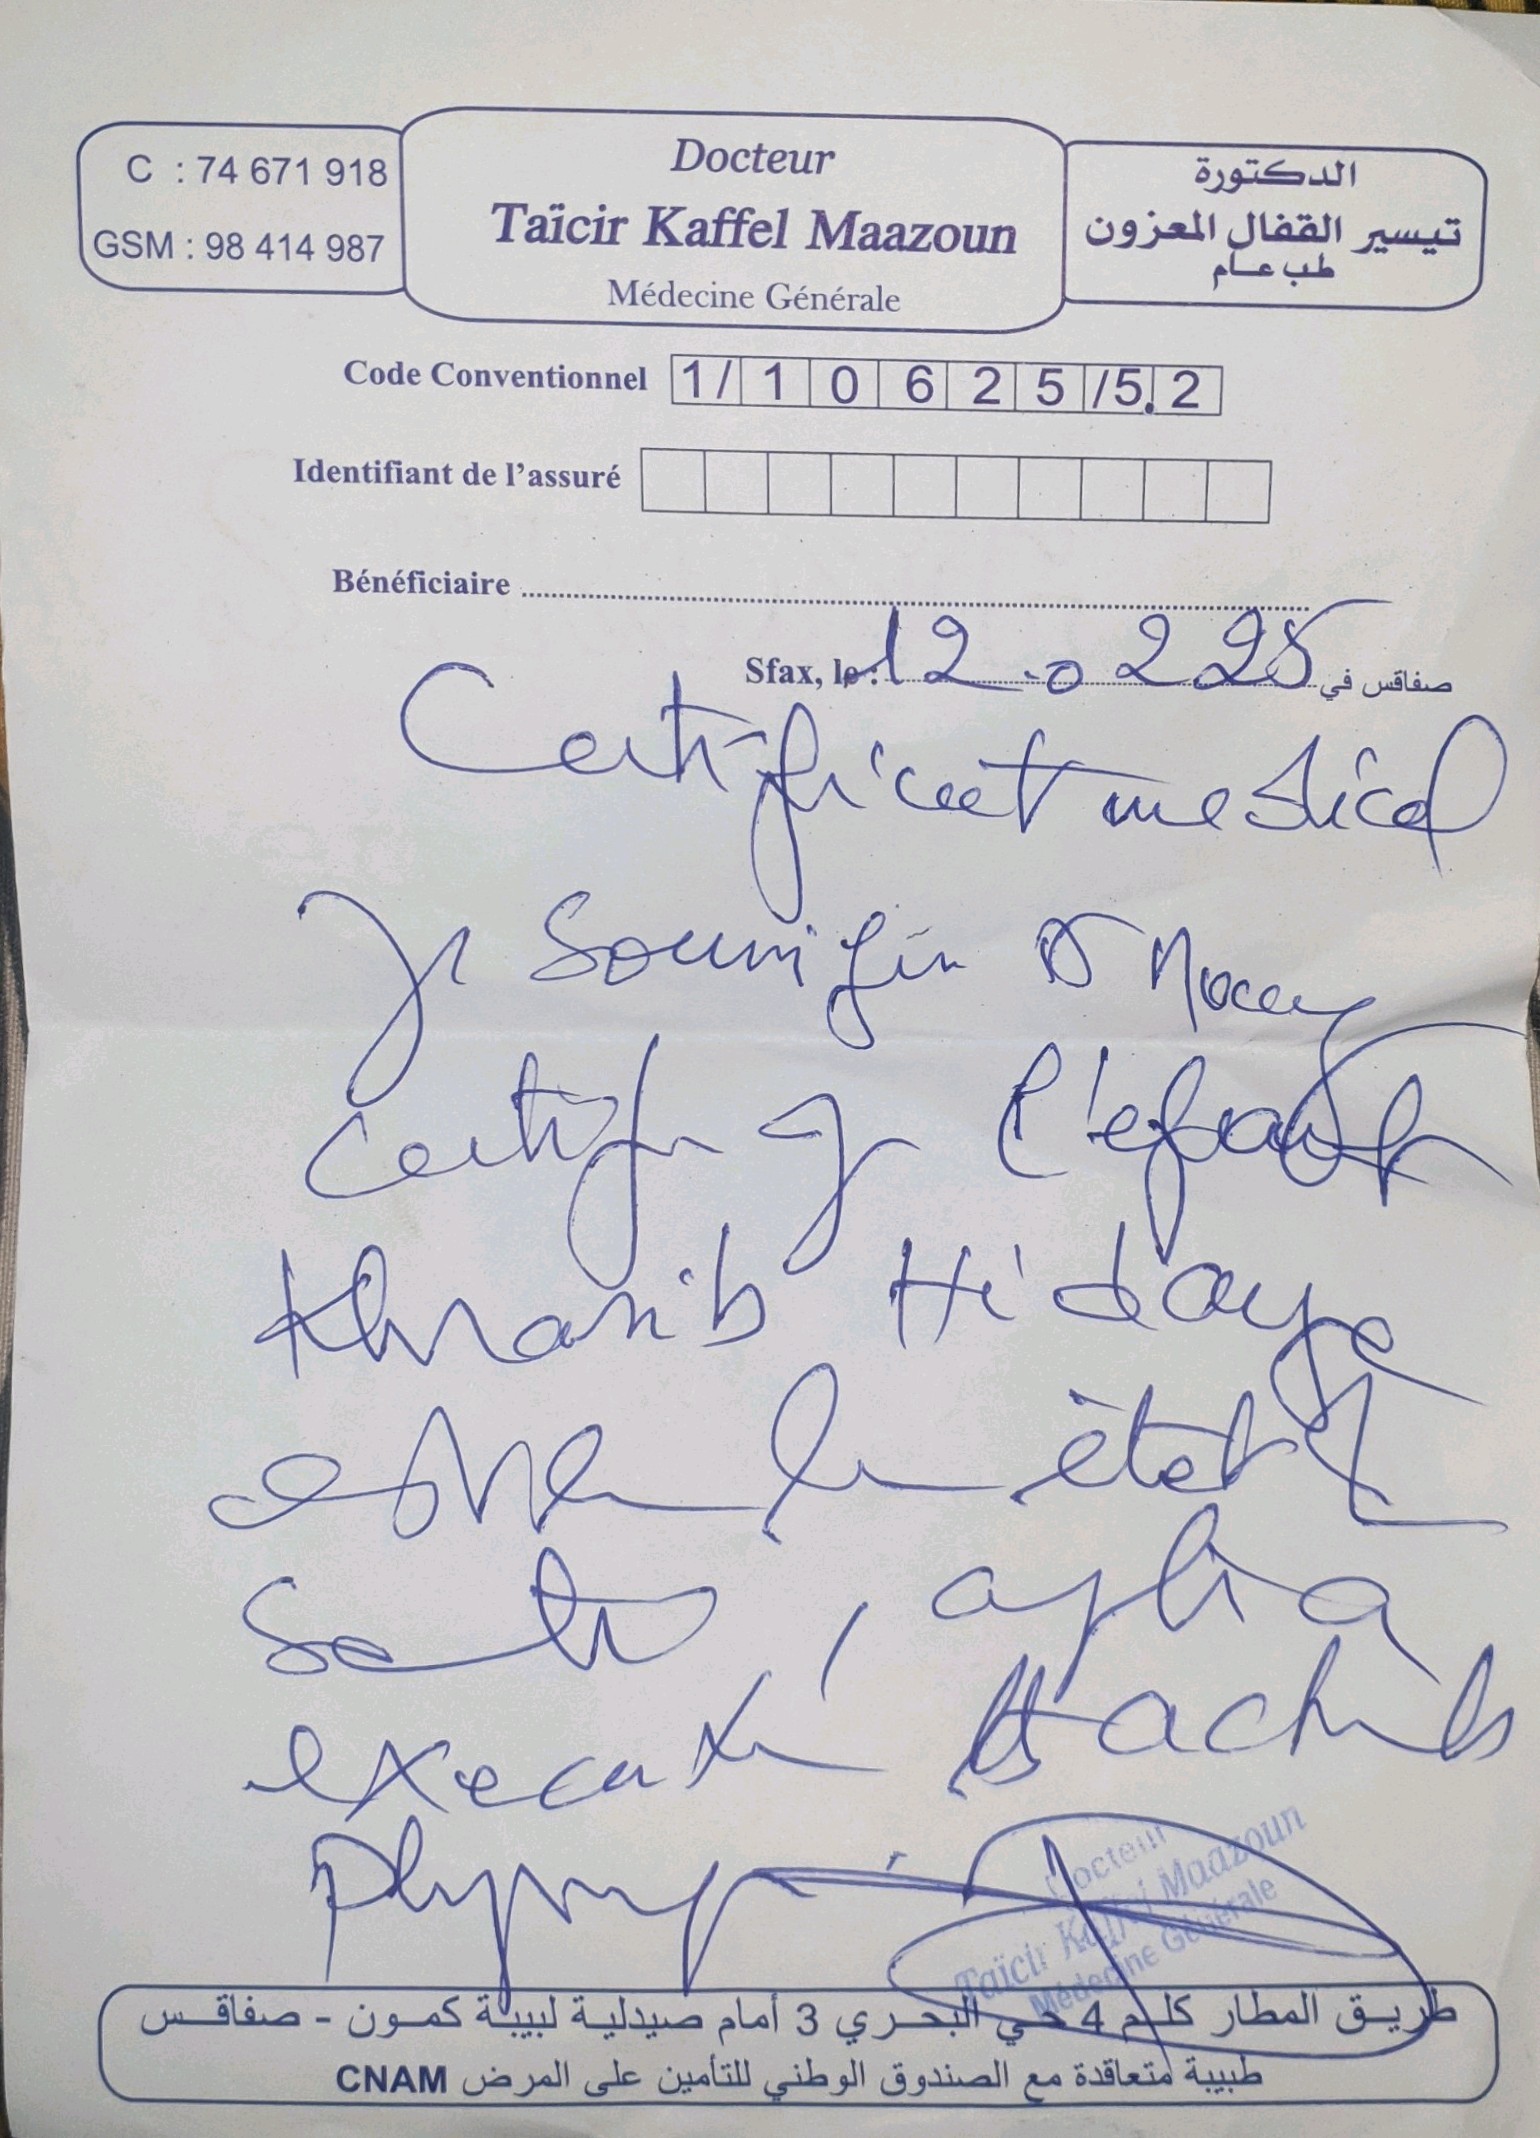 C : 74 671 918
GSM : 98 414 987
Docteur
Taïcir Kaffel Maazoun
Médecine Générale
الدكتورة
تيسير القفال المعزون
طب عام
Code Conventionnel 1/10625/5.2
Identifiant de l'assuré
Bénéficiaire
Sfax, le : 12.0225 صفاقس في
Certificat medical
Je Soussigné Dr
Certifie que l'efant
Kharrib Hidaya
en état de
Santé, apte a
executer
physique
Docteur
Taïcir Kaffel Maazoun
Médecine Générale
طريق المطار كلم 4 حي البحري 3 أمام صيدلية لبيبة كمون - صفاقس
طبيبة متعاقدة مع الصندوق الوطني للتأمين على المرض CNAM